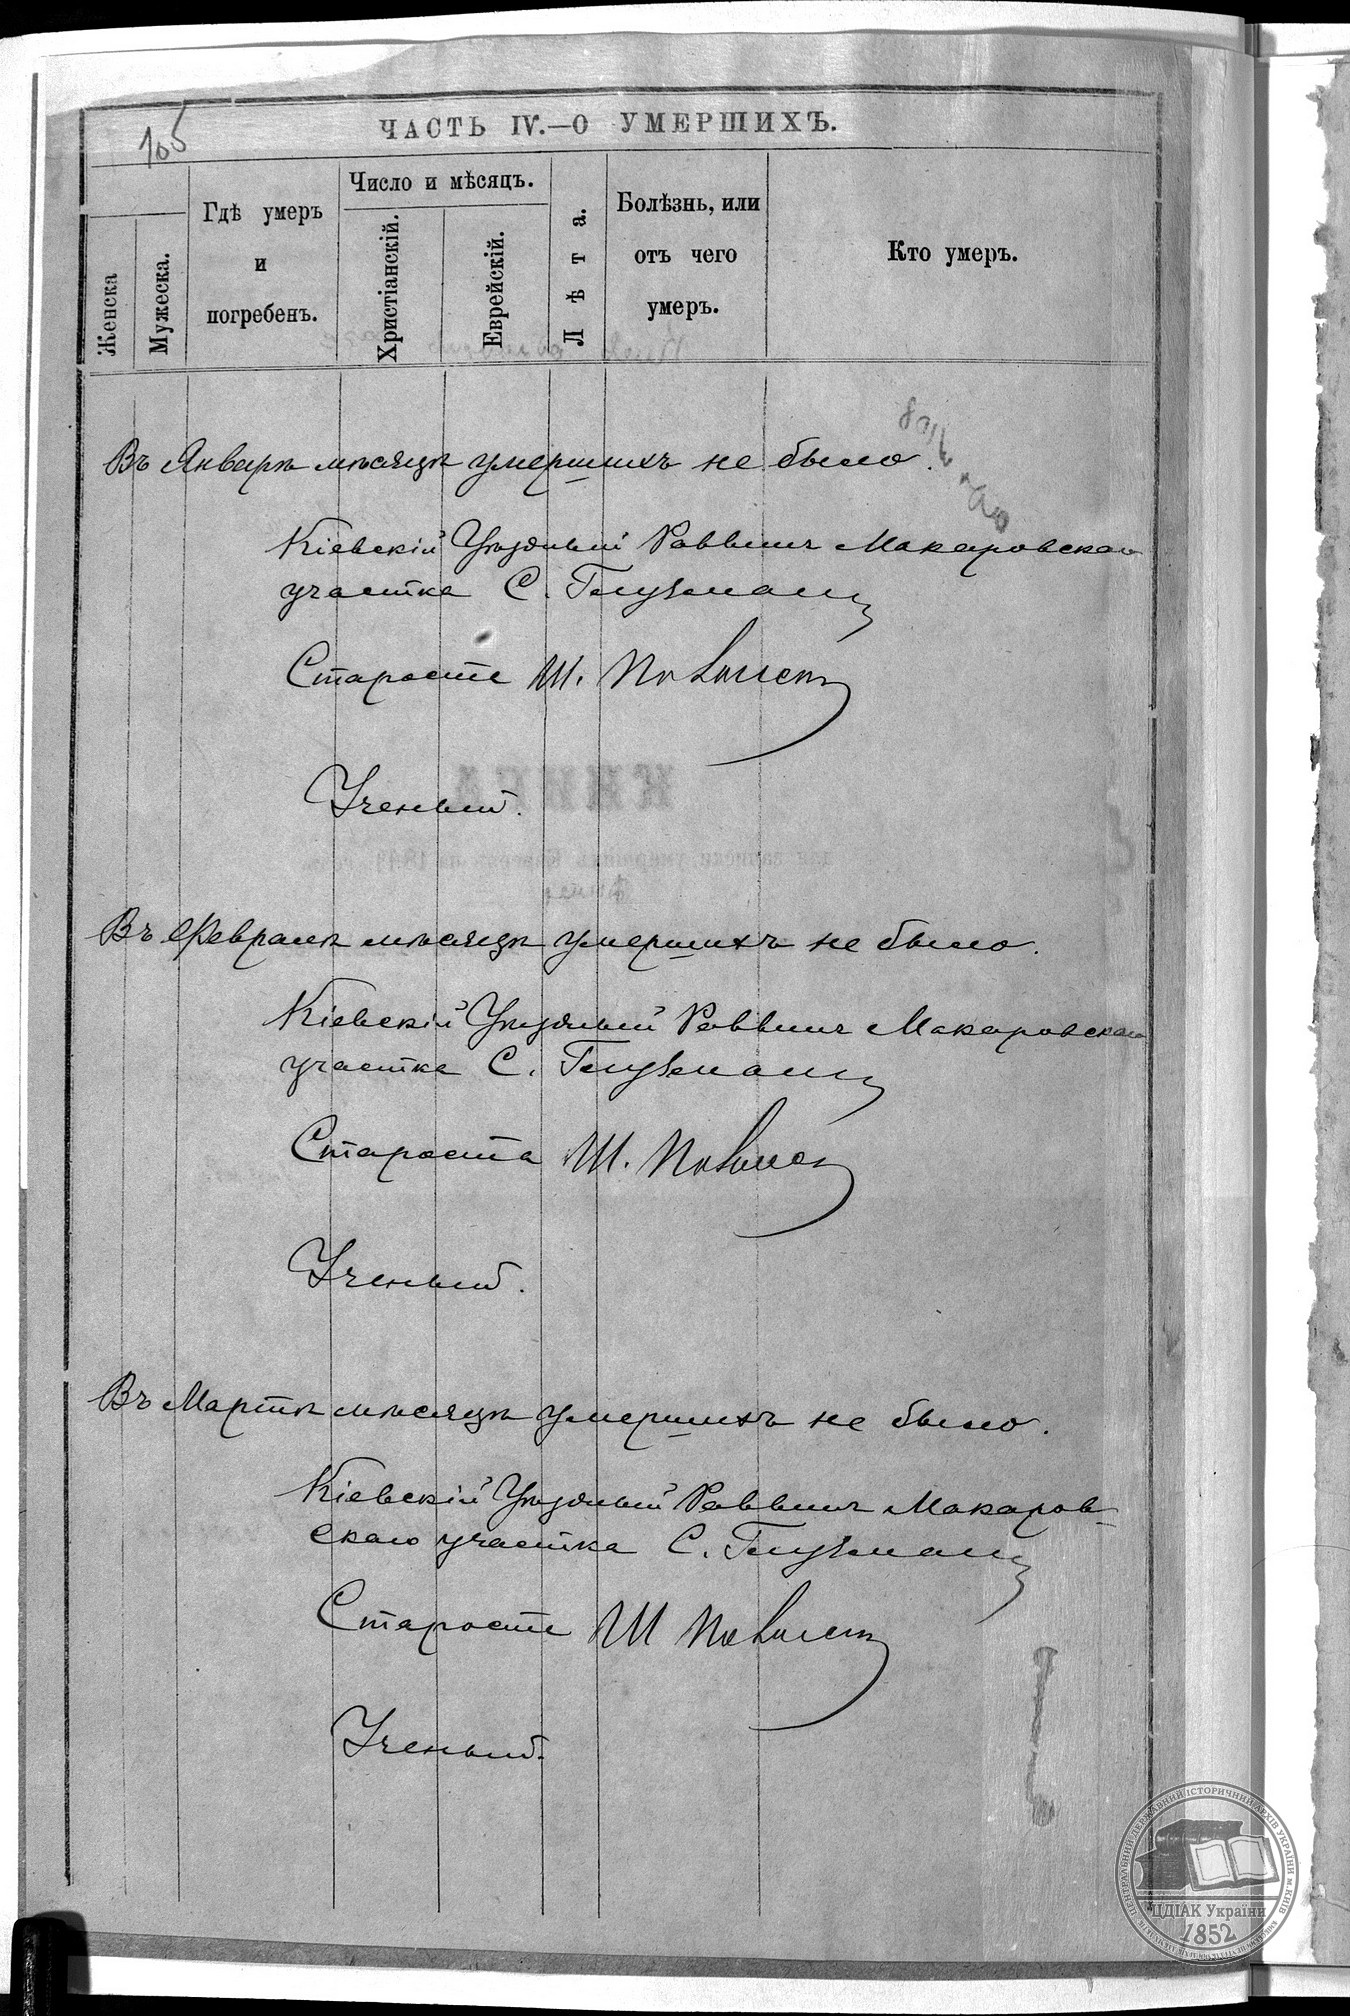 105
ЧАСТЬ IV.—О УМЕРШИХЪ.
Женска
Мужеска.
Гдѣ умеръ
и
погребенъ.
Число и мѣсяцъ.
Христіанскій.
Еврейскій.
Лѣта.
Болѣзнь, или
отъ чего
умеръ.
Кто умеръ.
Въ Январѣ мѣсяцѣ умершихъ не было.
Кіевскій Уѣздный Раввинъ Макаровскаго
участка С. Глузманъ
Староста Ш.
Ученый.
Въ Февралѣ мѣсяцѣ умершихъ не было.
Кіевскій Уѣздный Раввинъ Макаровскаго
участка С. Глузманъ
Староста Ш.
Ученый.
Въ Мартѣ мѣсяцѣ умершихъ не было.
Кіевскій Уѣздный Раввинъ Макаров-
скаго участка С. Глузманъ
Староста Ш
Ученый.
КНИГА
ЦЕНТРАЛЬНИЙ ДЕРЖАВНИЙ ІСТОРИЧНИЙ АРХІВ УКРАЇНИ м. КИЇВ
ЦДІАК України
1852